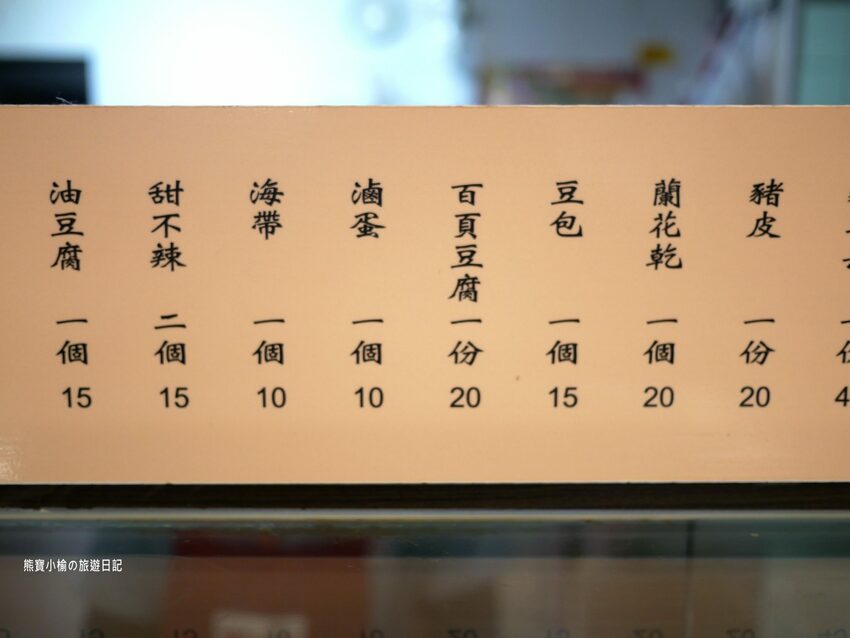 油豆腐 一個 15
甜不辣 二個 15
海帶 一個 10
滷蛋 一個 10
百頁豆腐 一份 20
豆包 一個 15
蘭花乾 一個 20
豬皮 一份 20
熊寶小榆の旅遊日記